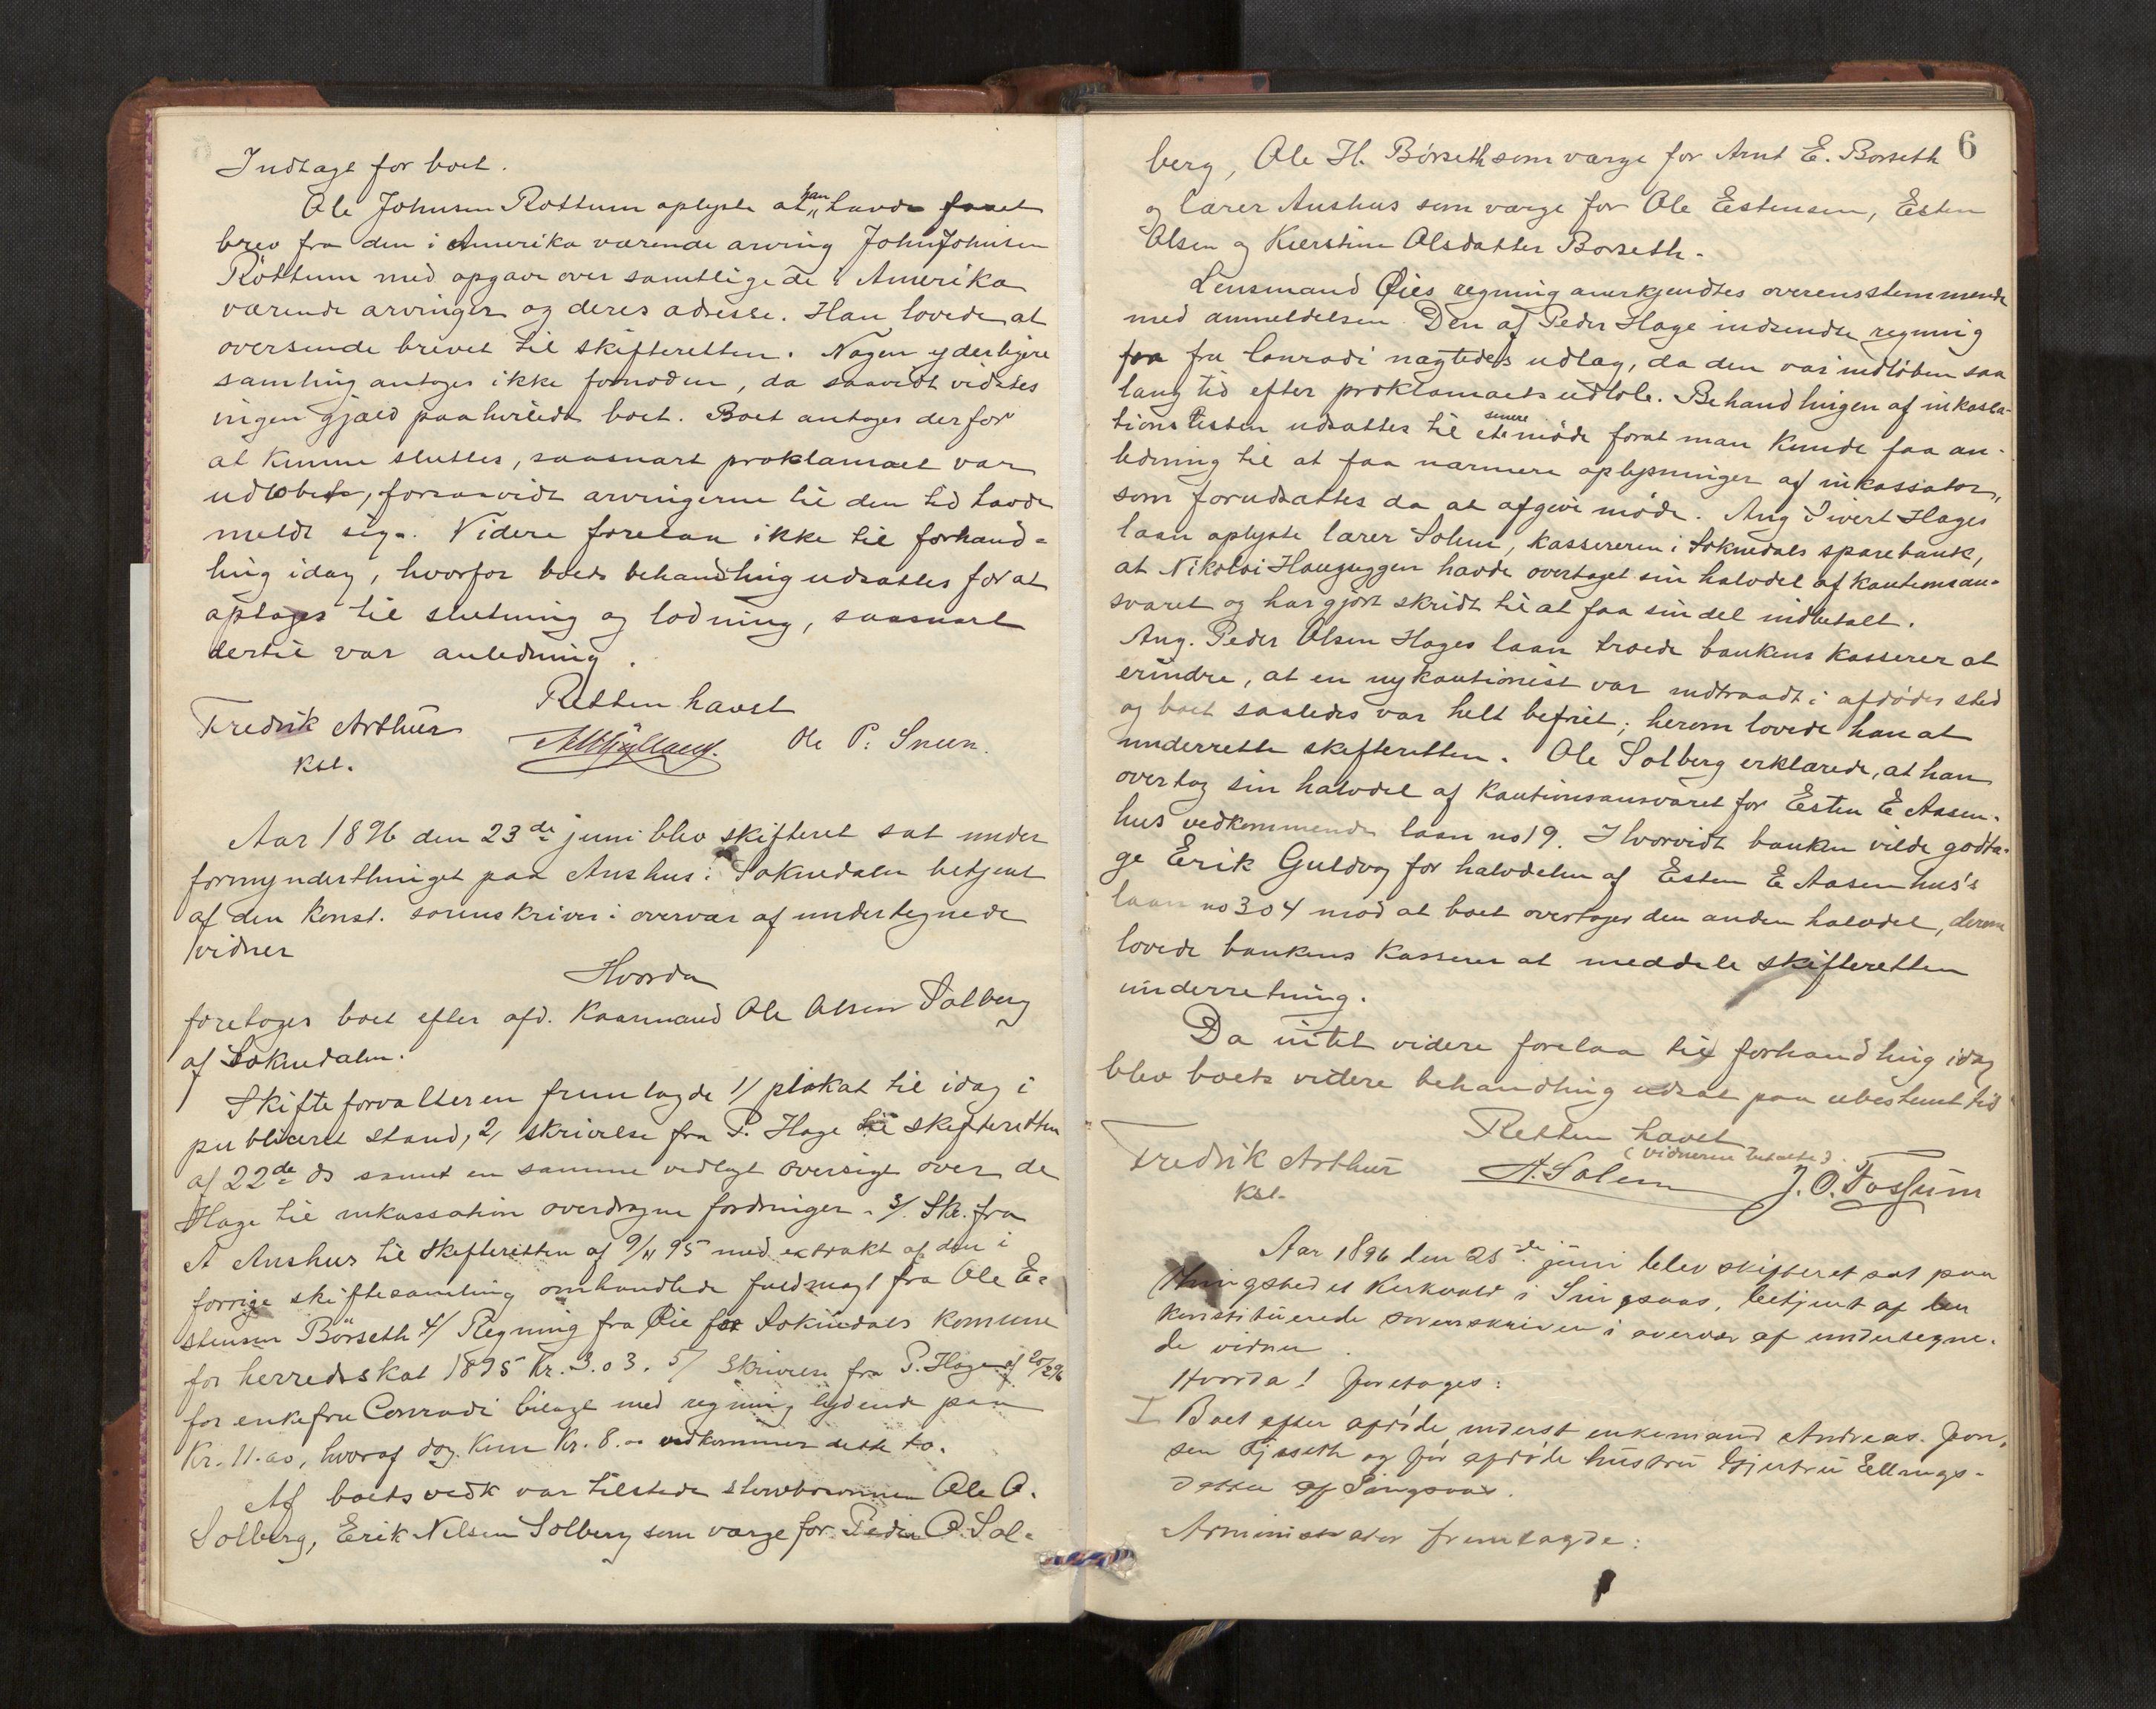 Indtægt for boet.
Ole Johnsen Røttum oplyste at han havde faaet
brev fra den i Amerika værende arving John Johnsen
Röttum med opgave over samtlige de i Amerika
værende arvinger og deres adresse. Han lovede at
oversende brevet til skifteretten. Nogen yderligere
samling antoges ikke fornøden, da saavidt vidstes
ingen gjæld paahvilede boet. Boet antoges derfor
at kunne sluttes, saasnart proklamaet var
udløbet, forsaavidt arvingerne til den tid havde
meldt sig. Videre forelaa ikke til forhand-
ling idag, hvorfor boets behandling udsattes for at
optages til slutning og lodning, saasnart
dertil var anledning.
Retten hævet
Fredrik Arthur
kst.
Ole P. Sneen.
Aar 1896 den 23de juni blev skifteret sat under
formynderthinget paa Anshus i Soknedalen betjent
af den konst. sorenskriver i overvær af undertegnede
vidner
Hvorda
foretoges boet efter afd. Kaarmand Ole Olsen Solberg
af Soknedalen.
Skifteforvalteren fremlagde 1/ plakat til idag i
publiceret stand, 2/ skrivelse fra P. Hage til skifteretten
af 22de ds samt en samme vedlagt oversigt over de
Hage til inkassation overdragne fordringer. 3/ Skr. fra
A Anshus til skifteretten af 9/11 95 med extrakt af den i
forrige skiftesamling omhandlede fuldmagt fra Ole E-
stensen Börseth 4/ Regning fra Øie for Soknedals komune
for herredsskat 1895 Kr. 3.03. 5/ Skrivelse fra P. Hage af 20/2 96
for enkefru Conradi bilagt med regning lydende paa
Kr. 11.00, hvoraf dog kun Kr. 8.00 vedkommer dette bo.
Af boets vedk var tilstede stervboenken Ole O.
Solberg, Erik Nilsen Solberg som værge for Peder O. Sol-
6
berg, Ole H. Börseth som værge for Arnt E. Borseth
og lærer Anshus som værge for Ole Estensen, Esten
Olsen og Kierstine Olsdatter Borseth.
Lensmand Øies regning anerkjendtes overensstemmende
med anmeldelsen. Den af Peder Hage indsendte regning
fra fru Conradi nægtedes udlæg, da den var indløben saa
lang tid efter proklamaets udløb. Behandlingen af inkassa-
tionslisten udsattes til et senere møde forat man kunde faa an-
ledning til at faa nærmere oplysninger af inkassator,
som forudsattes da at afgive møde. Ang Ivert Hages
laan oplyste lærer Solem, kassereren i Soknedals sparebank,
at Nikolai Haugruggen havde overtaget sin halvdel af kautionsan-
svaret og har gjort skridt til at faa sin del indbetalt.
Ang. Peder Olsen Hages laan troede bankens kasserer at
erindre, at en ny kautionist var indtraadt i afdødes sted
og boet saaledes var helt befriet; herom lovede han at
underrette skifteretten. Ole Solberg erklærede, at han
overtog sin halvdel af kautionsansvaret for Esten E Aasen-
hus vedkommende laan no 19. Hvorvidt banken vilde godta-
ge Erik Guldvog for halvdelen af Esten E Aasenhus's
laan no 304 mod at boet overtager den anden halvdel, derom
lovede bankens kasserer at meddele skifteretten
underretning.
Da intet videre forelaa til forhandling idag
blev boets videre behandling udsat paa ubestemt tid
Retten hævet
(vidnerne betalte).
Fredrik Arthur
kst.
A. Solem
J. O. Fossum
Aar 1896 den 25de juni blev skifteret sat paa
thingstedet Kirkvold i Singsaas, betjent af den
konstituerede sorenskriver i overvær af undertegne-
de vidner.
Hvorda! foretoges:
I Boet efter afdøde inderst enkemand Andreas Jon-
sen og før afdøde hustru Gjertru Ellings-
datter af Singsaas.
Administrator fremlagde: